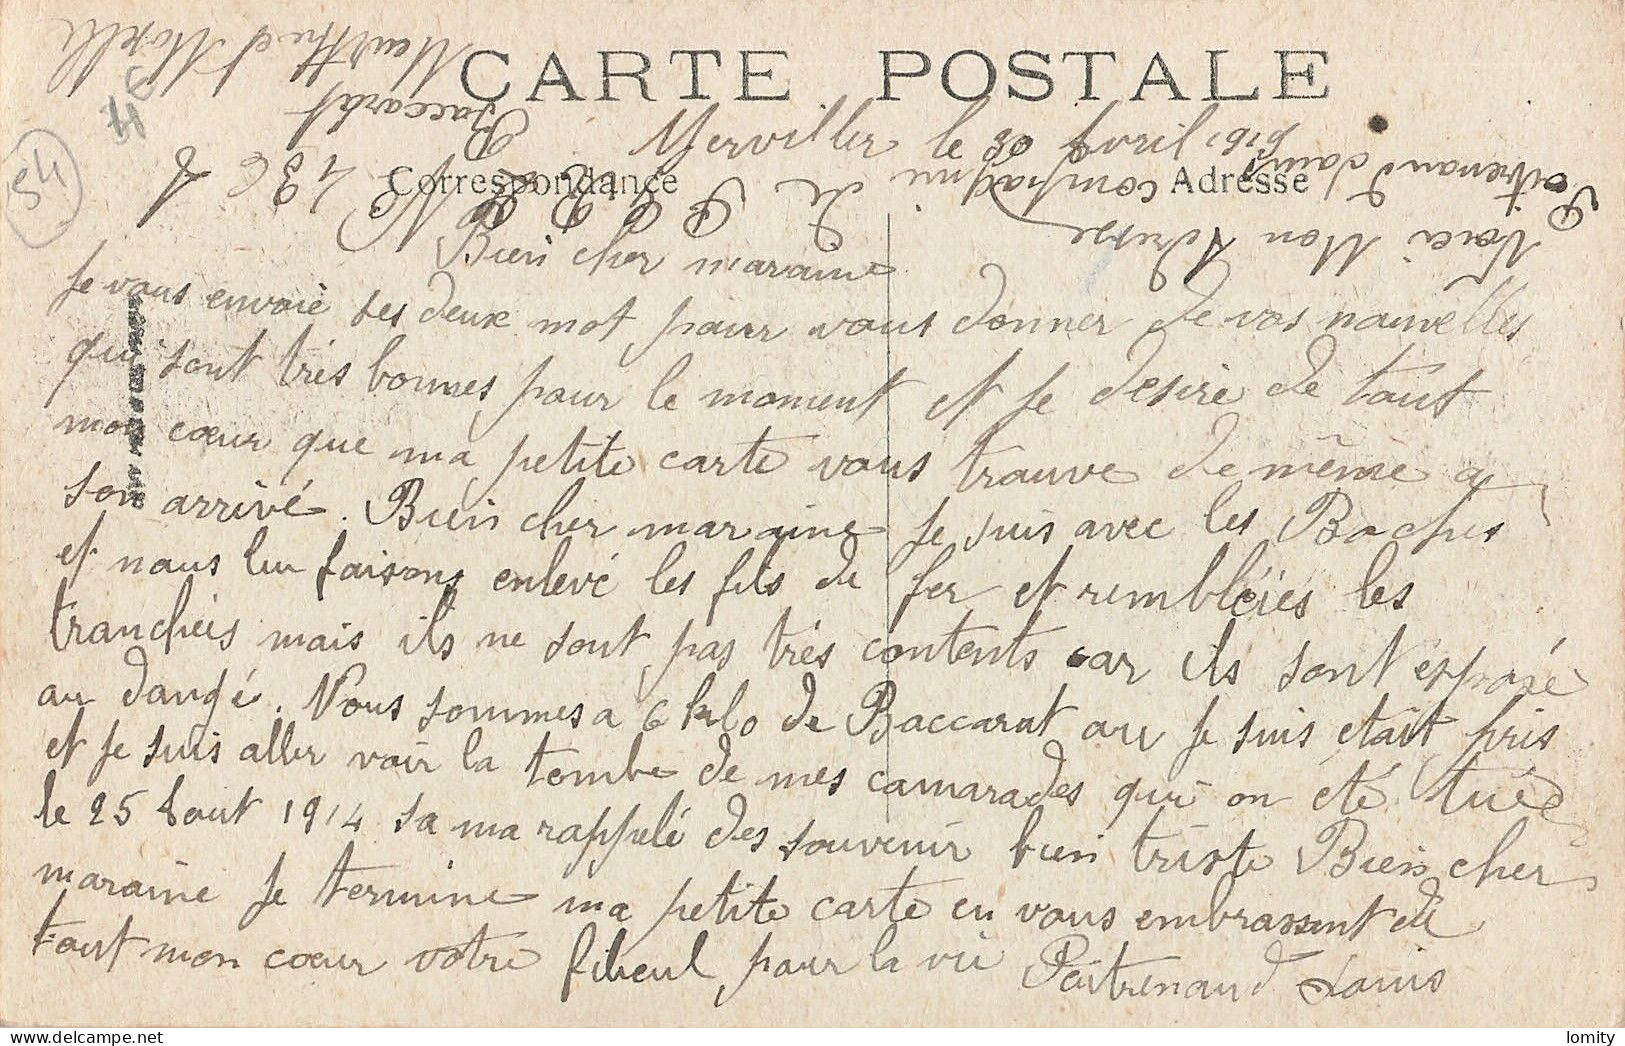 CARTE POSTALE
Correspondance
Adresse
Merviller le 30 Avril 1919
Bien cher maraine
Je vous envoie ses deux mot pour vous donner de vos nouvelles
qui sont très bonnes pour le moment et Je desire de tout
mon cœur que ma petite carte vous trouve de même a
son arrivé. Bien cher maraine Je suis avec les Boches
et nous lui faisons enlevé les fils de fer et rembléiés les
trancheés mais ils ne sont pas très contents car ils sont exposé
au dangé. Nous sommes a 6 kilo de Baccarat ou Je suis était pris
et Je suis aller voir la tombe de mes camarades qui on été tués
le 25 Aout 1914 sa ma rappelé des souvenir bien triste Bien cher
maraine Je termine ma petite carte en vous embrassent de
tout mon cœur votre filieul pour la vie Poitrenaud Louis
Voici Mon Adresse
Poitrenaud Louis
compagni de P
436
Baccarat
Meurthe et Moselle
54
lomity